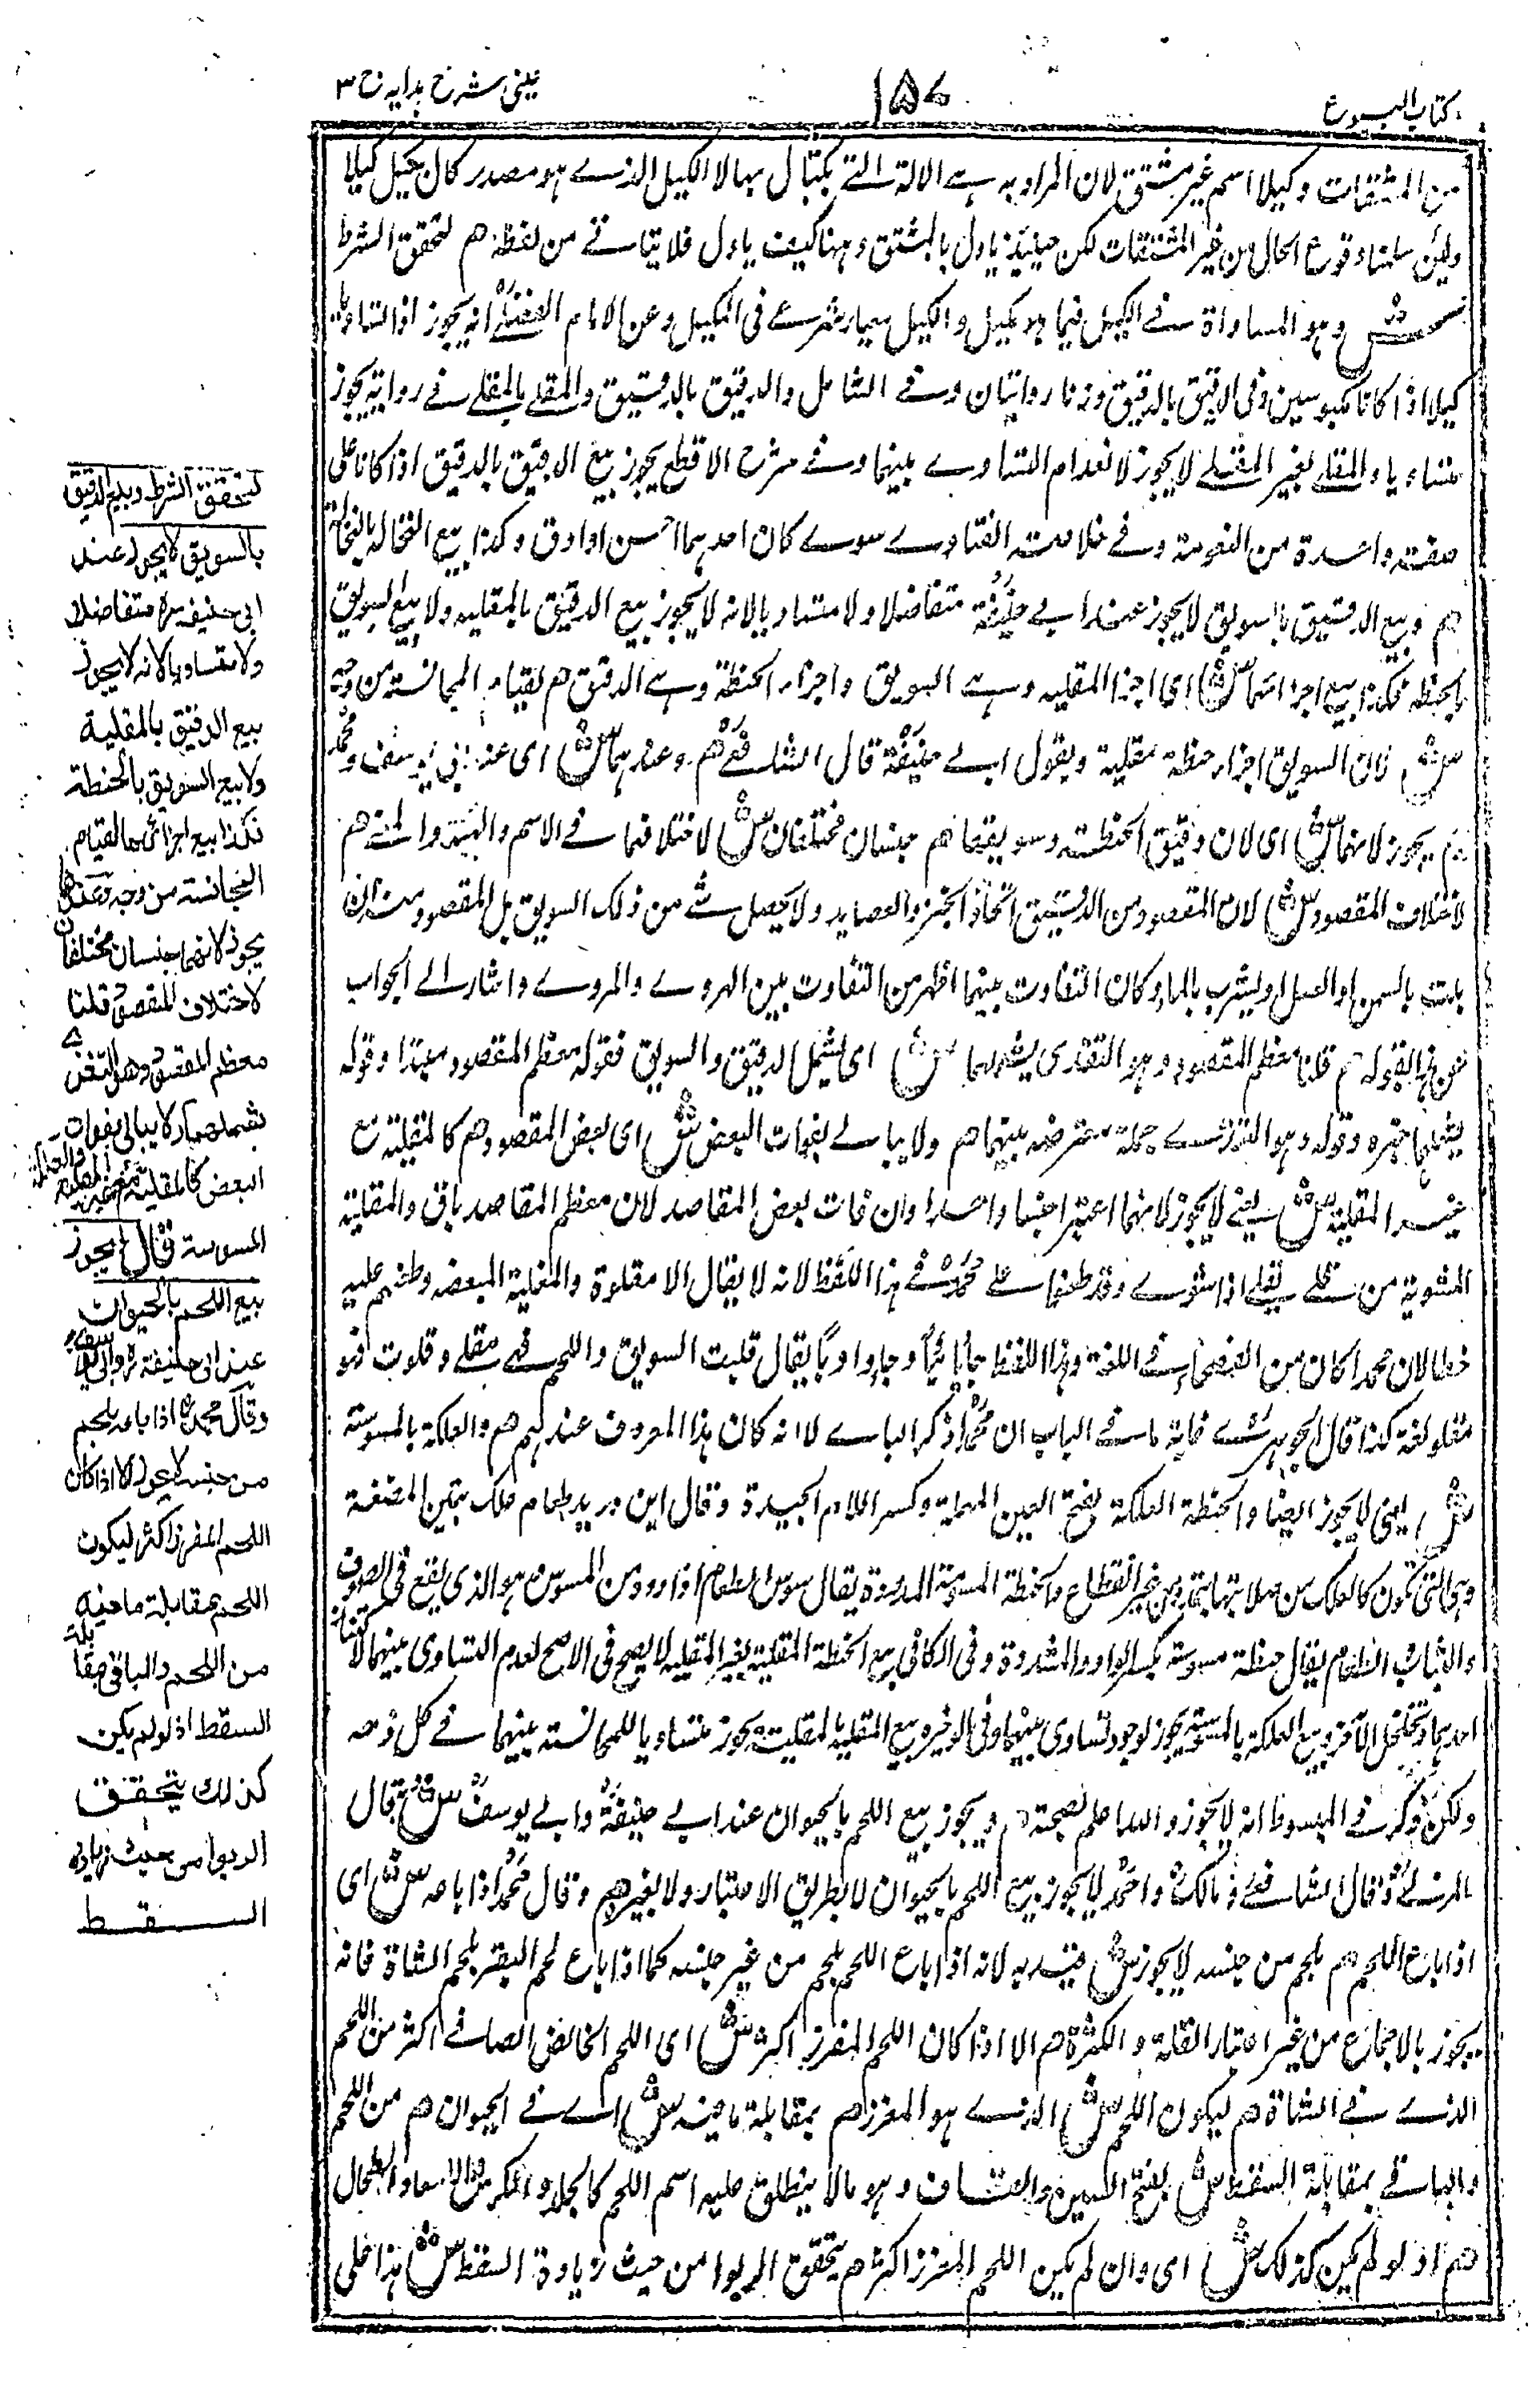 كتاب البيوع
١٥٧
عينى شرح هدايه ج ٣
من المشتقات وكيلا اسم غير مشتق لان المراد به هى الالة التى يكتال بها لا الكيل الذى هو مصدر كال يكيل كيلا
ولئن سلمنا وقوع الحال من غير المشتقات لكن حينئذ ياول بالمشتق وههنا كيف ياول فلا يتاتى من لفظه هم لتحقق الشرط
ش وهو المساواة فى الكيل فيما هو مكيل والكيل معيار شرعى فى المكيل وعن الامام الفضلى انه يجوز اذا تساويا
كيلا اذا كانا مكبوسين وفى الدقيق بالدقيق وزنا روايتان وفى الشامل والدقيق بالدقيق والمقلى بالمقلى فى رواية يجوز
متساويا والمقلى بغير المقلى لا يجوز لانعدام التساوى بينهما وفى شرح الاقطع يجوز بيع الدقيق بالدقيق اذا كانا على
صفة واحدة من النعومة وفى خلاصة الفتاوى سوى كان احدهما احسن او ادق وكذا بيع النخالة بالنخالة
هم وبيع الدقيق بالسويق لا يجوز عند ابى حنيفة متفاضلا ولا متساويا لانه لا يجوز بيع الدقيق بالمقلية ولا بيع السويق
بالحنطة فكذا بيع اجزائهما ش اى اجزا المقلية وهى السويق واجزاء الحنطة وهى الدقيق هم لقيام المجانسة من وجه
ش لان السويق اجزاء حنطة مقلية وبقول ابى حنيفة قال الشافعى هم وعندهما ش اى عند ابى يوسف ومحمد
هم يجوز لانهما ش اى لان دقيق الحنطة وسويقها هم جنسان مختلفان ش لاختلافهما فى الاسم والهيئة والمعنى هم
لاختلاف المقصود ش لان المقصود من الدقيق اتخاذ الخبز والعصايد ولا يحصل شى من ذلك السويق بل المقصود منه ان
يلت بالسمن او العسل او يشرب بالماء وكان التفاوت بينهما اظهر من التفاوت بين الهروى والمروى واشار الى الجواب
عن هذا بقوله هم قلنا معظم المقصود وهو التغذى يشملهما ش اى يشمل الدقيق والسويق فقوله معظم المقصود مبتدا وقوله
يشملهما خبره وقوله وهو التغذى جملة معترضة بينهما هم ولا يبالى بفوات البعض ش اى بعض المقصود هم كالمقلية مع
غير المقلية ش يعنى لا يجوز لانهما اعتبرا جنسا واحدا وان فات بعض المقاصد لان معظم المقاصد باق والمقلية
المشوية من قلى يقلى اذا شوى وقد طعنوا على محمد فى هذا اللفظ لانه لا يقال الا مقلوة والمقلية المبغضة وطعنهم عليه
خطا لان محمدا كان من الفصحاء فى اللغة وهذا اللفظ جاء يائيا وجاء واويا يقال قليت السويق واللحم فهى مقلى وقلوت فهو
مقلو لغة كذا قال الجوهرى غاية ما فى الباب ان محمدا ذكر اليائى لانه كان هذا المعروف عندهم هم والعلكة بالمسوسة
ش يعنى لا يجوز ايضا والحنطة العلكة بفتح العين المهملة وكسر اللام الجيدة وقال ابن دريد طعام علك متين المضغة
وهى التى تكون كالعلك من صلابتها تمتد من غير انقطاع والحنطة المسوسة المدودة يقال سوس الطعام اذا دود من السوس وهو الذى يقع فى الصوف
والثياب والطعام يقال حنطة مسوسة بكسر الواو المشددة وفى الكافى بيع الحنطة المقلية بغير المقلية لا يصح فى الاصح لعدم التساوى بينهما لاكتناز
احدهما وتخلخل الآخر وبيع العلكة بالمسوسة يجوز لوجود التساوى بينهما وفى الذخيرة بيع المقلية بالمقلية يجوز متساويا للمجانسة بينهما فى كل وجه
ولكن ذكر فى المبسوط انه لا يجوز والله اعلم بصحته هم ويجوز بيع اللحم بالحيوان عند ابى حنيفة وابى يوسف ش وبه قال
المزنى وقال الشافعى ومالك واحمد لا يجوز بيع اللحم بالحيوان لا بطريق الاعتبار ولا بغيره هم وقال محمد اذا باعه ش اى
اذا باع اللحم هم بلحم من جنسه لا يجوز ش قيد به لانه اذا باع اللحم بلحم من غير جنسه كما اذا باع لحم البقر بلحم الشاة فانه
يجوز بالاجماع من غير اعتبار القلة والكثرة هم الا اذا كان اللحم المفرز اكثر ش اى اللحم الخالص الصافى اكثر من اللحم
الذى فى الشاة هم ليكون اللحم ش الذى هو المفرز هم بمقابلة ما فيه ش اى فى الحيوان هم من اللحم
والباقى بمقابلة السقط ش بفتح السين والقاف وهو ما لا ينطلق عليه اسم اللحم كالجلد والكرش والامعاء والطحال
هم اذ لو لم يكن كذلك ش اى وان لم يكن اللحم المفرز اكثر هم يتحقق الربوا من حيث زيادة السقط ش هذا على
لتحقق الشرط وبيع الدقيق
بالسويق لا يجوز عند
ابى حنيفة ره متفاضلا
ولا متساويا لانه لا يجوز
بيع الدقيق بالمقلية
ولا بيع السويق بالحنطة
فكذا بيع اجزائهما لقيام
المجانسة من وجه وعندهما
يجوز لانهما جنسان مختلفان
لاختلاف المقصود قلنا
معظم المقصود وهو التغذى
يشملهما فلا يبالى بفوات
البعض كالمقلية مع غير المقلية والعلكة
بالمسوسة قال يجوز
بيع اللحم بالحيوان
عند ابى حنيفة ره وابى يوسف
وقال محمد ره اذا باعه بلحم
من جنسه لا يجوز الا اذا كان
اللحم المفرز اكثر ليكون
اللحم بمقابلة ما فيه
من اللحم والباقى بمقابلة
السقط اذ لو لم يكن
كذلك يتحقق
الربوا من حيث زيادة
السقط